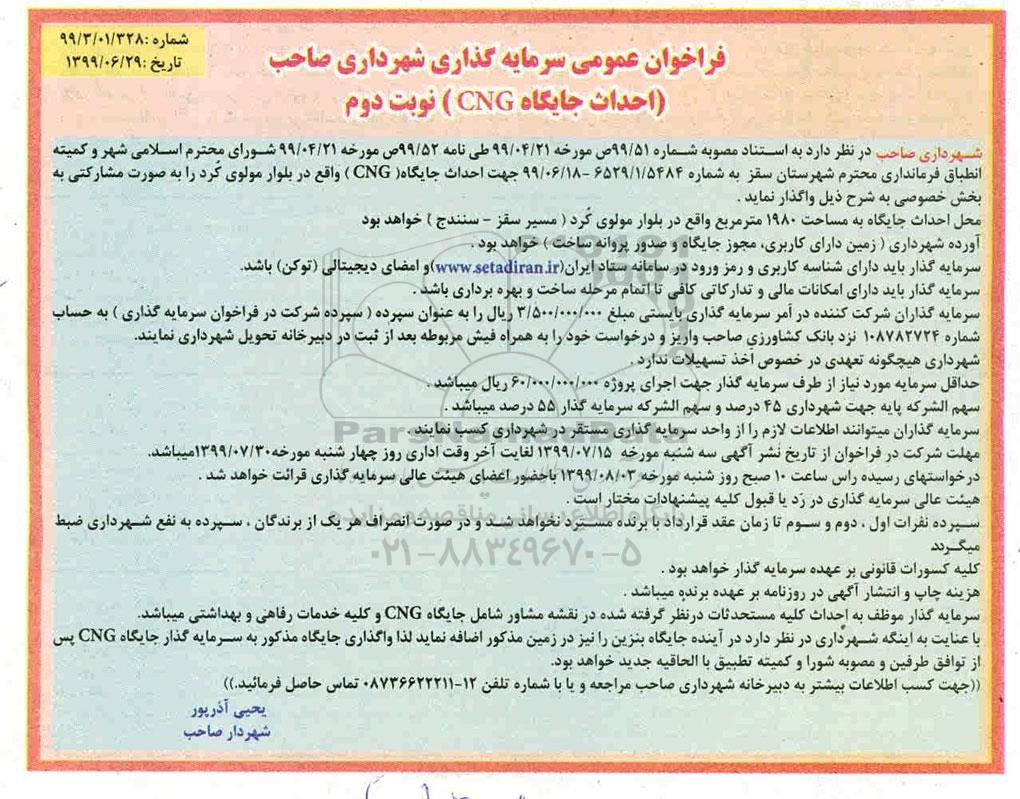 شماره :۹۹/۳/۰۱/۳۲۸
تاریخ :۱۳۹۹/۰۶/۲۹
فراخوان عمومی سرمایه گذاری شهرداری صاحب
(احداث جایگاه CNG ) نوبت دوم
شهرداری صاحب در نظر دارد به استناد مصوبه شماره ۹۹/۵۱ص مورخه ۹۹/۰۴/۲۱ طی نامه ۹۹/۵۲ص مورخه ۹۹/۰۴/۲۱ شورای محترم اسلامی شهر و کمیته
انطباق فرمانداری محترم شهرستان سقز به شماره ۶۵۲۹/۱/۵۴۸۴ -۹۹/۰۶/۱۸ جهت احداث جایگاه( CNG ) واقع در بلوار مولوی کُرد را به صورت مشارکتی به
بخش خصوصی به شرح ذیل واگذار نماید .
محل احداث جایگاه به مساحت ۱۹۸۰ مترمربع واقع در بلوار مولوی کُرد ( مسیر سقز - سنندج ) خواهد بود
آورده شهرداری ( زمین دارای کاربری، مجوز جایگاه و صدور پروانه ساخت ) خواهد بود .
سرمایه گذار باید دارای شناسه کاربری و رمز ورود در سامانه ستاد ایران(www.setadiran.ir)و امضای دیجیتالی (توکن) باشد.
سرمایه گذار باید دارای امکانات مالی و تدارکاتی کافی تا اتمام مرحله ساخت و بهره برداری باشد .
سرمایه گذاران شرکت کننده در اَمر سرمایه گذاری بایستی مبلغ ۳/۵۰۰/۰۰۰/۰۰۰ ریال را به عنوان سپرده ( سپرده شرکت در فراخوان سرمایه گذاری ) به حساب
شماره ۱۰۸۷۸۲۷۲۴ نزد بانک کشاورزی صاحب واریز و درخواست خود را به همراه فیش مربوطه بعد از ثبت در دبیرخانه تحویل شهرداری نمایند.
شهرداری هیچگونه تعهدی در خصوص اَخذ تسهیلات ندارد .
حداقل سرمایه مورد نیاز از طرف سرمایه گذار جهت اجرای پروژه ۶۰/۰۰۰/۰۰۰/۰۰۰ ریال میباشد .
سهم الشرکه پایه جهت شهرداری ۴۵ درصد و سهم الشرکه سرمایه گذار ۵۵ درصد میباشد .
سرمایه گذاران میتوانند اطلاعات لازم را از واحد سرمایه گذاری مستقر در شهرداری کسب نمایند .
ParsNamadData
مهلت شرکت در فراخوان از تاریخ نشر آگهی سه شنبه مورخه ۱۳۹۹/۰۷/۱۵ لغایت آخر وقت اداری روز چهار شنبه مورخه۱۳۹۹/۰۷/۳۰میباشد.
درخواستهای رسیده راس ساعت ۱۰ صبح روز شنبه مورخه ۱۳۹۹/۰۸/۰۳ باحضور اعضای هیئت عالی سرمایه گذاری قرائت خواهد شد .
هیئت عالی سرمایه گذاری در رَد یا قبول کلیه پیشنهادات مختار است .
پایگاه اطلاع رسانی مناقصه و مزایده
سپرده نفرات اول ، دوم و سوم تا زمان عقد قرارداد با برنده مسترد نخواهد شد و در صورت انصراف هر یک از برندگان ، سپرده به نفع شهرداری ضبط
میگردد
۰۲۱-۸۸۳۴۹۶۷۰-۵
کلیه کسورات قانونی بر عهده سرمایه گذار خواهد بود .
هزینه چاپ و انتشار آگهی در روزنامه بر عهده برنده میباشد .
سرمایه گذار موظف به اِحداث کلیه مستحدثات درنظر گرفته شده در نقشه مشاور شامل جایگاه CNG و کلیه خدمات رفاهی و بهداشتی میباشد.
با عنایت به اینگه شهرداری در نظر دارد در آینده جایگاه بنزین را نیز در زمین مذکور اضافه نماید لذا واگذاری جایگاه مذکور به سرمایه گذار جایگاه CNG پس
از توافق طرفین و مصوبه شورا و کمیته تطبیق با الحاقیه جدید خواهد بود.
((جهت کسب اطلاعات بیشتر به دبیرخانه شهرداری صاحب مراجعه و یا با شماره تلفن ۱۲-۰۸۷۳۶۶۲۲۲۱۱ تماس حاصل فرمائید.))
یحیی آذرپور
شهردار صاحب